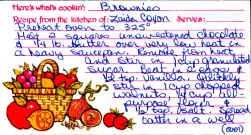 Here's what's cookin': Brownies
Recipe from the kitchen of: Serves:
Preheat oven to 325°
Melt 2 squares unsweetened chocolate
& 1/4 lb. butter over very low heat in
a heavy saucepan. Remove from heat
and stir in 1 cup granulated
sugar. Beat in 2 eggs &
1/2 tsp. vanilla. Quickly
stir in 1 cup chopped
walnuts, 1/4 cup all-
purpose flour &
1/4 tsp. salt. Spread
batter in a well
(over)